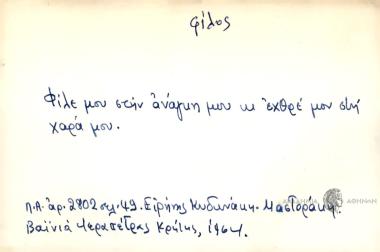 φίλος
Φίλε μου στήν ἀνάγκη μου κι ἐχθρέ μου στή
χαρά μου.
Λ.Α. ἀρ. 2802 σελ. 49. Εἰρήνης Κυδωνάκη - Μαστοράκη.
Βαϊνιά Ἱεραπέτρας Κρήτης, 1964.
ΑΚΑΔΗΜΙΑ ΑΘΗΝΩΝ